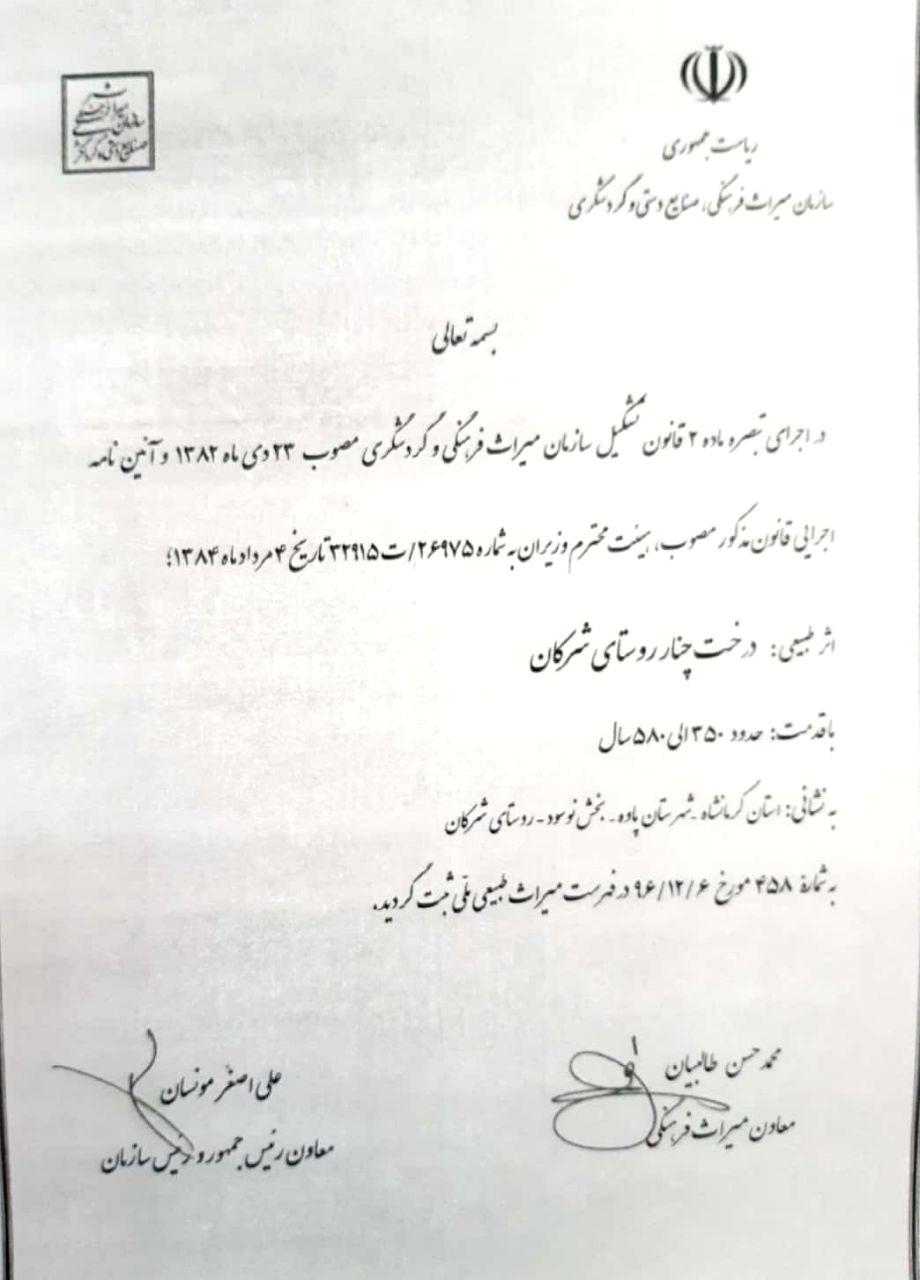 ریاست جمهوری
سازمان میراث فرهنگی، صنایع دستی و گردشگری
سازمان میراث فرهنگی
صنایع دستی و گردشگری
بسمه تعالی
در اجرای تبصره ماده ۲ قانون تشکیل سازمان میراث فرهنگی و گردشگری مصوب ۲۳ دی ماه ۱۳۸۲ و آئین نامه
اجرایی قانون مذکور مصوب، هیئت محترم وزیران به شماره ۲۶۹۷۵/ت۳۲۹۱۵ تاریخ ۴ مرداد ماه ۱۳۸۴؛
اثر طبیعی: درخت چنار روستای شرکان
باقدمت: حدود ۳۵۰ الی ۵۸۰ سال
به نشانی: استان کرمانشاه - شهرستان پاوه - بخش نوسود - روستای شرکان
به شمارهٔ ۴۵۸ مورخ ۹۶/۱۲/۶ در فهرست میراث طبیعی ملّی ثبت گردید.
محمد حسن طالبیان
معاون میراث فرهنگی
علی اصغر مونسان
معاون رئیس جمهور و رئیس سازمان